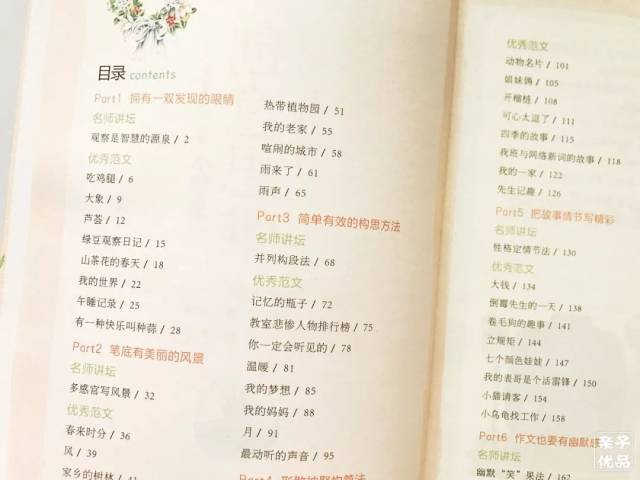 目录 contents
Part1 拥有一双发现的眼睛
名师讲坛
观察是智慧的源泉 / 2
优秀范文
吃鸡腿 / 6
大象 / 9
芦荟 / 12
绿豆观察日记 / 15
山茶花的春天 / 18
我的世界 / 22
午睡记录 / 25
有一种快乐叫种蒜 / 28
Part2 笔底有美丽的风景
名师讲坛
多感官写风景 / 32
优秀范文
春来时分 / 36
风 / 39
家乡的树林 / 41
热带植物园 / 51
我的老家 / 55
喧闹的城市 / 58
雨来了 / 61
雨声 / 65
Part3 简单有效的构思方法
名师讲坛
并列构段法 / 68
优秀范文
记忆的瓶子 / 72
教室悲惨人物排行榜 / 75
你一定会听见的 / 78
温暖 / 81
我的梦想 / 85
我的妈妈 / 88
月 / 91
最动听的声音 / 95
Part4
优秀范文
动物名片 / 101
姐妹俩 / 105
开榴梿 / 108
可心太逗了 / 111
四季的故事 / 115
我班与网络新词的故事 / 118
我的一家 / 122
先生记趣 / 126
Part5 把故事情节写精彩
名师讲坛
性格定情节法 / 130
优秀范文
大钱 / 134
倒霉先生的一天 / 138
卷毛狗的趣事 / 141
立规矩 / 144
七个颜色娃娃 / 147
我的表哥是个活雷锋 / 150
小猫请客 / 154
小乌龟找工作 / 158
Part6 作文也要有幽默感
名师讲坛
幽默“笑”果法 / 162
亲子
优品